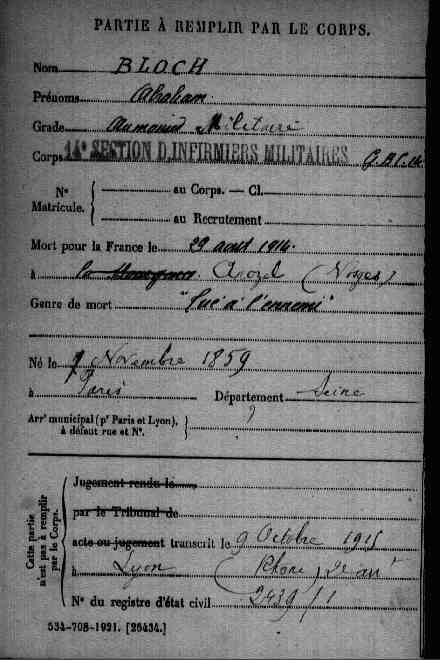 PARTIE À REMPLIR PAR LE CORPS.
Nom BLOCH
Prénoms Abraham
Grade Aumonier Militaire
Corps 14e SECTION D'INFIRMIERS MILITAIRES
No Matricule. { au Corps. — Cl.
au Recrutement
Mort pour la France le 29 aout 1914.
à Anozel (Vosges)
Genre de mort "Tué à l'ennemi"
Né le 7 Novembre 1859
à Paris Département Seine
Arrt municipal (pr Paris et Lyon), à défaut rue et No. }
Cette partie n'est pas à remplir par le Corps.
Jugement rendu le
par le Tribunal de
acte ou jugement transcrit le 9 Octobre 1915
à Lyon (Rhone)
No du registre d'état civil 2439/1
534-708-1921. [26434.]